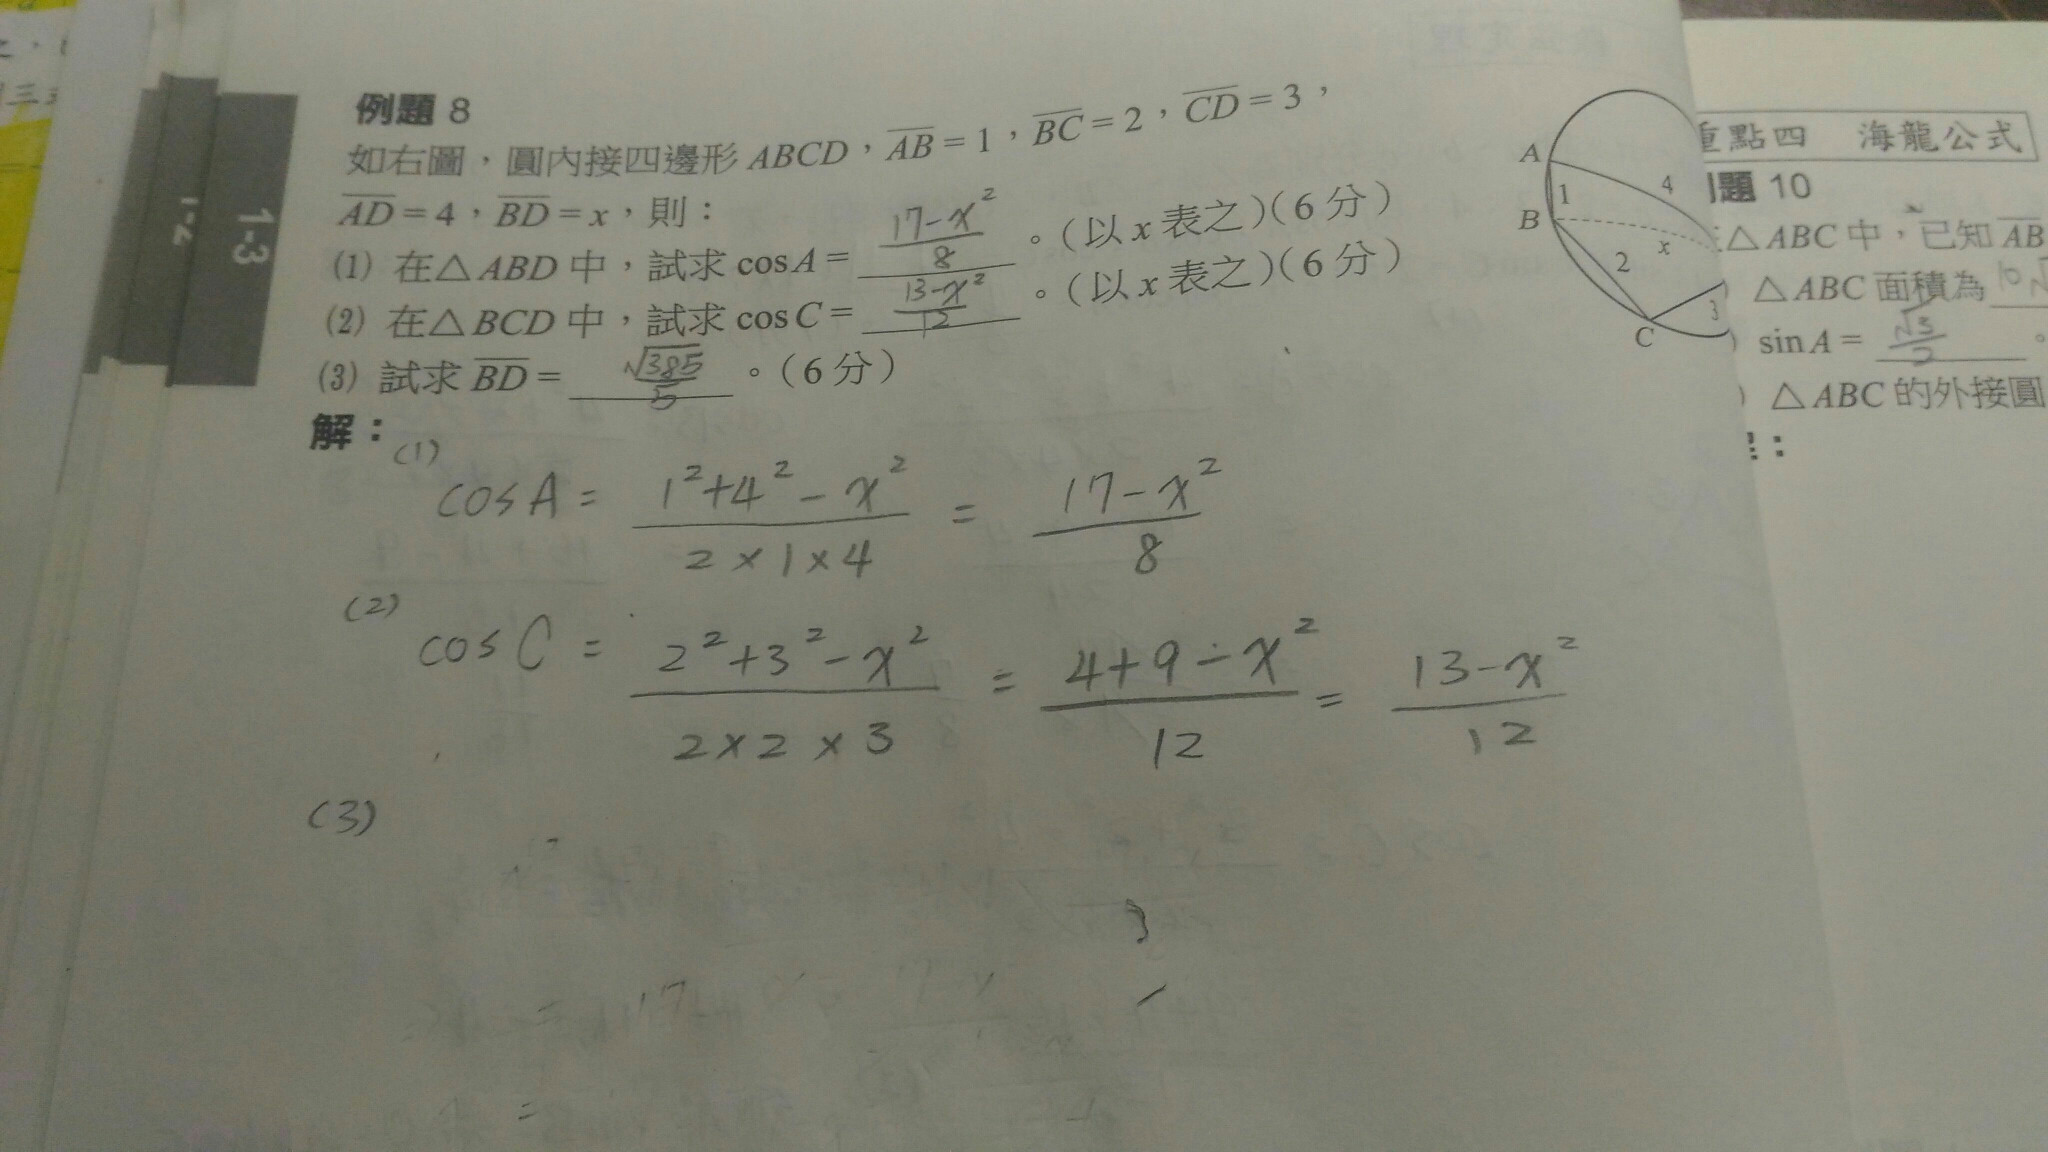 例題 8
如右圖，圓內接四邊形 ABCD，AB = 1，BC = 2，CD = 3，
AD = 4，BD = x，則：
(1) 在△ABD 中，試求 cos A = (17-x²)/8 。(以 x 表之)(6 分)
(2) 在△BCD 中，試求 cos C = (13-x²)/12 。(以 x 表之)(6 分)
(3) 試求 BD = √385/5 。(6 分)
解：
(1)
cos A = (1²+4²-x²)/(2×1×4) = (17-x²)/8
(2)
cos C = (2²+3²-x²)/(2×2×3) = (4+9-x²)/12 = (13-x²)/12
(3)
A
1
4
B
x
2
3
C
1-2
1-3
重點四 海龍公式
題 10
△ABC 中，已知 AB
△ABC 面積為 10√
sin A = √3/2 。
△ABC 的外接圓
：